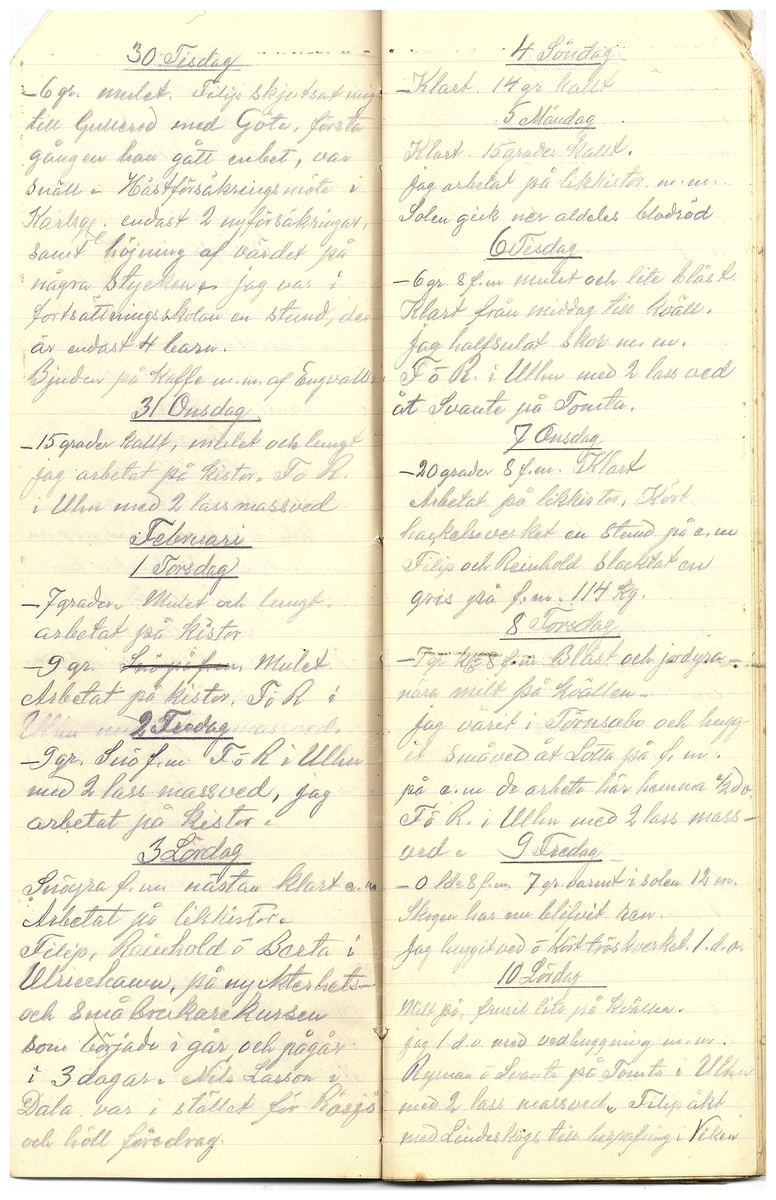 30 Tisdag
-6 gr. mulet. Filip skjutsat mig
till Gullered med Göte, första
gången han gått enbet, var
snäll. Hästförsäkringsmöte i
endast 2 nyförsäkringar,
samt höjning af värdet på
några stycken. jag var i
fortsättningsskolan en stund, der
är endast 4 barn.
Bjuden på kaffe m.m. af Engvalls
31 Onsdag
-15 grader kallt, mulet och lungt
jag arbetat på kistor. F o R.
i Ulhn med 2 lass massved
Februari
1 Torsdag
-7 grader. Mulet och lungt.
arbetat på kistor
-9 gr. Mulet.
Arbetat på kistor. F o R i
Ulhn med massved.
2 Fredag
-9 gr. Snö f.m F o R i Ulhn
med 2 lass massved, jag
arbetat på kistor.
3 Lördag
Snöyra f.m. nästan klart e.m
Arbetat på likkistor.
Filip, Reinhold o Berta i
Ulricehamn, på nykterhets-
och småbrukarekursen
som började i går och pågår
i 3 dagar. Nils Larson i
Dala var i stället för Rösjö
och höll föredrag.
4 Söndag
-Klart. 14 gr kallt
5 Måndag
Klart. 15 grader kallt.
jag arbetat på likkistor m.m.
Solen gick ner aldeles blodröd
6 Tisdag
-6 gr. 8 f.m mulet och lite blåst
Klart från middag till kväll.
jag halfsulat skor m.m.
F o R. i Ulhn med 2 lass ved
åt Svante på Tomta.
7 Onsdag
-20 grader 8 f.m. Klart
Arbetat på likkistor, Kört
hackelseverket en stund på e.m
Filip och Reinhold slacktat en
gris på f.m. 114 kg.
8 Torsdag
-7 gr kl 8 f.m Blåst och
nära milt på kvällen.
jag varit i Törnsabo och hugg-
it småved åt Lotta på f.m.
på e.m de arbete här hemma 1/2 d.v.
F o R. i Ulhn med 2 lass mass-
ved.
9 Fredag
-0 kl 8 f.m. 7 gr. varmt i solen 12 m.
Skogen har nu blifvit ren.
Jag huggit ved o kört tröskverket. 1. d.v.
10 Lördag
Milt på, frusit lite på kvällen.
jag 1 d.v. med vedhuggning m.m.
Ryman o Svante på Tomta i Ulhn
med 2 lass massved. Filip åkt
med Lindskogs till begrafning i Viken